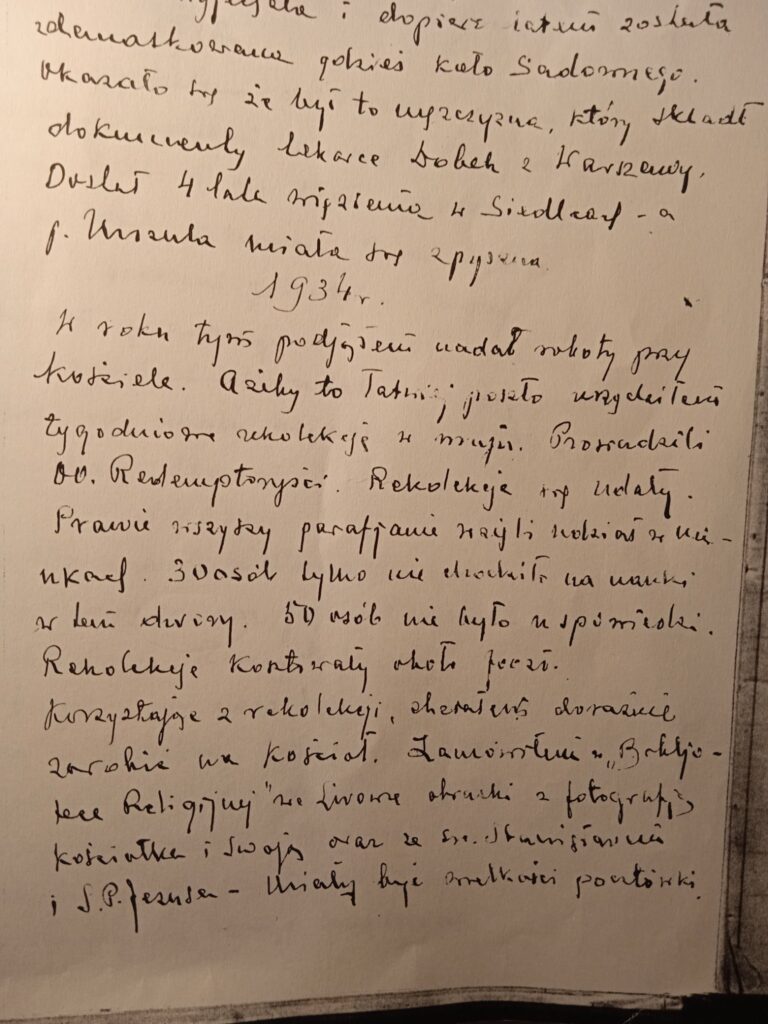 i dopiero latem została
zdemaskowana gdzieś koło Sadownego.
Okazało się że był to mężczyzna, który skradł
dokumenty lekarce Dobek z Warszawy.
Dostał 4 lata więzienia w Siedlcach - a
p. Urszula miała się z pyszna.
1934 r.
W roku tym podjąłem nadal roboty przy
kościele. Ażeby to łatwiej poszło urządziłem
tygodniowe rekolekcje w maju. Prowadzili
OO. Redemptoryści. Rekolekcje się udały.
Prawie wszyscy parafjanie wzięli udział w na-
ukach. 30 osób tylko nie chodziło na nauki
w tem dwory. 50 osób nie było u spowiedzi.
Rekolekcje kosztowały około
Korzystając z rekolekcji, chciałem doraźnie
zarobić na kościół. Zamówiłem w „Bibljo-
tece Religijnej" we Lwowie obrazki z fotografją
kościółka i swoją oraz ze św. Stanisławem
i S.P. Jezusa - Miały być wielkości pocztówki.